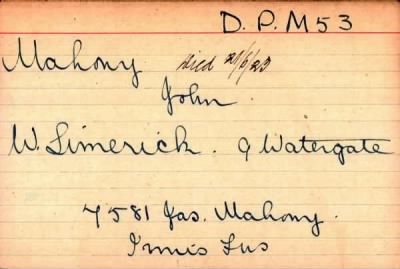 D.P.M53
Mahony died 21/6/23
John
W. Limerick. 9 Watergate
7581 Jas. Mahony.
Innis Fus